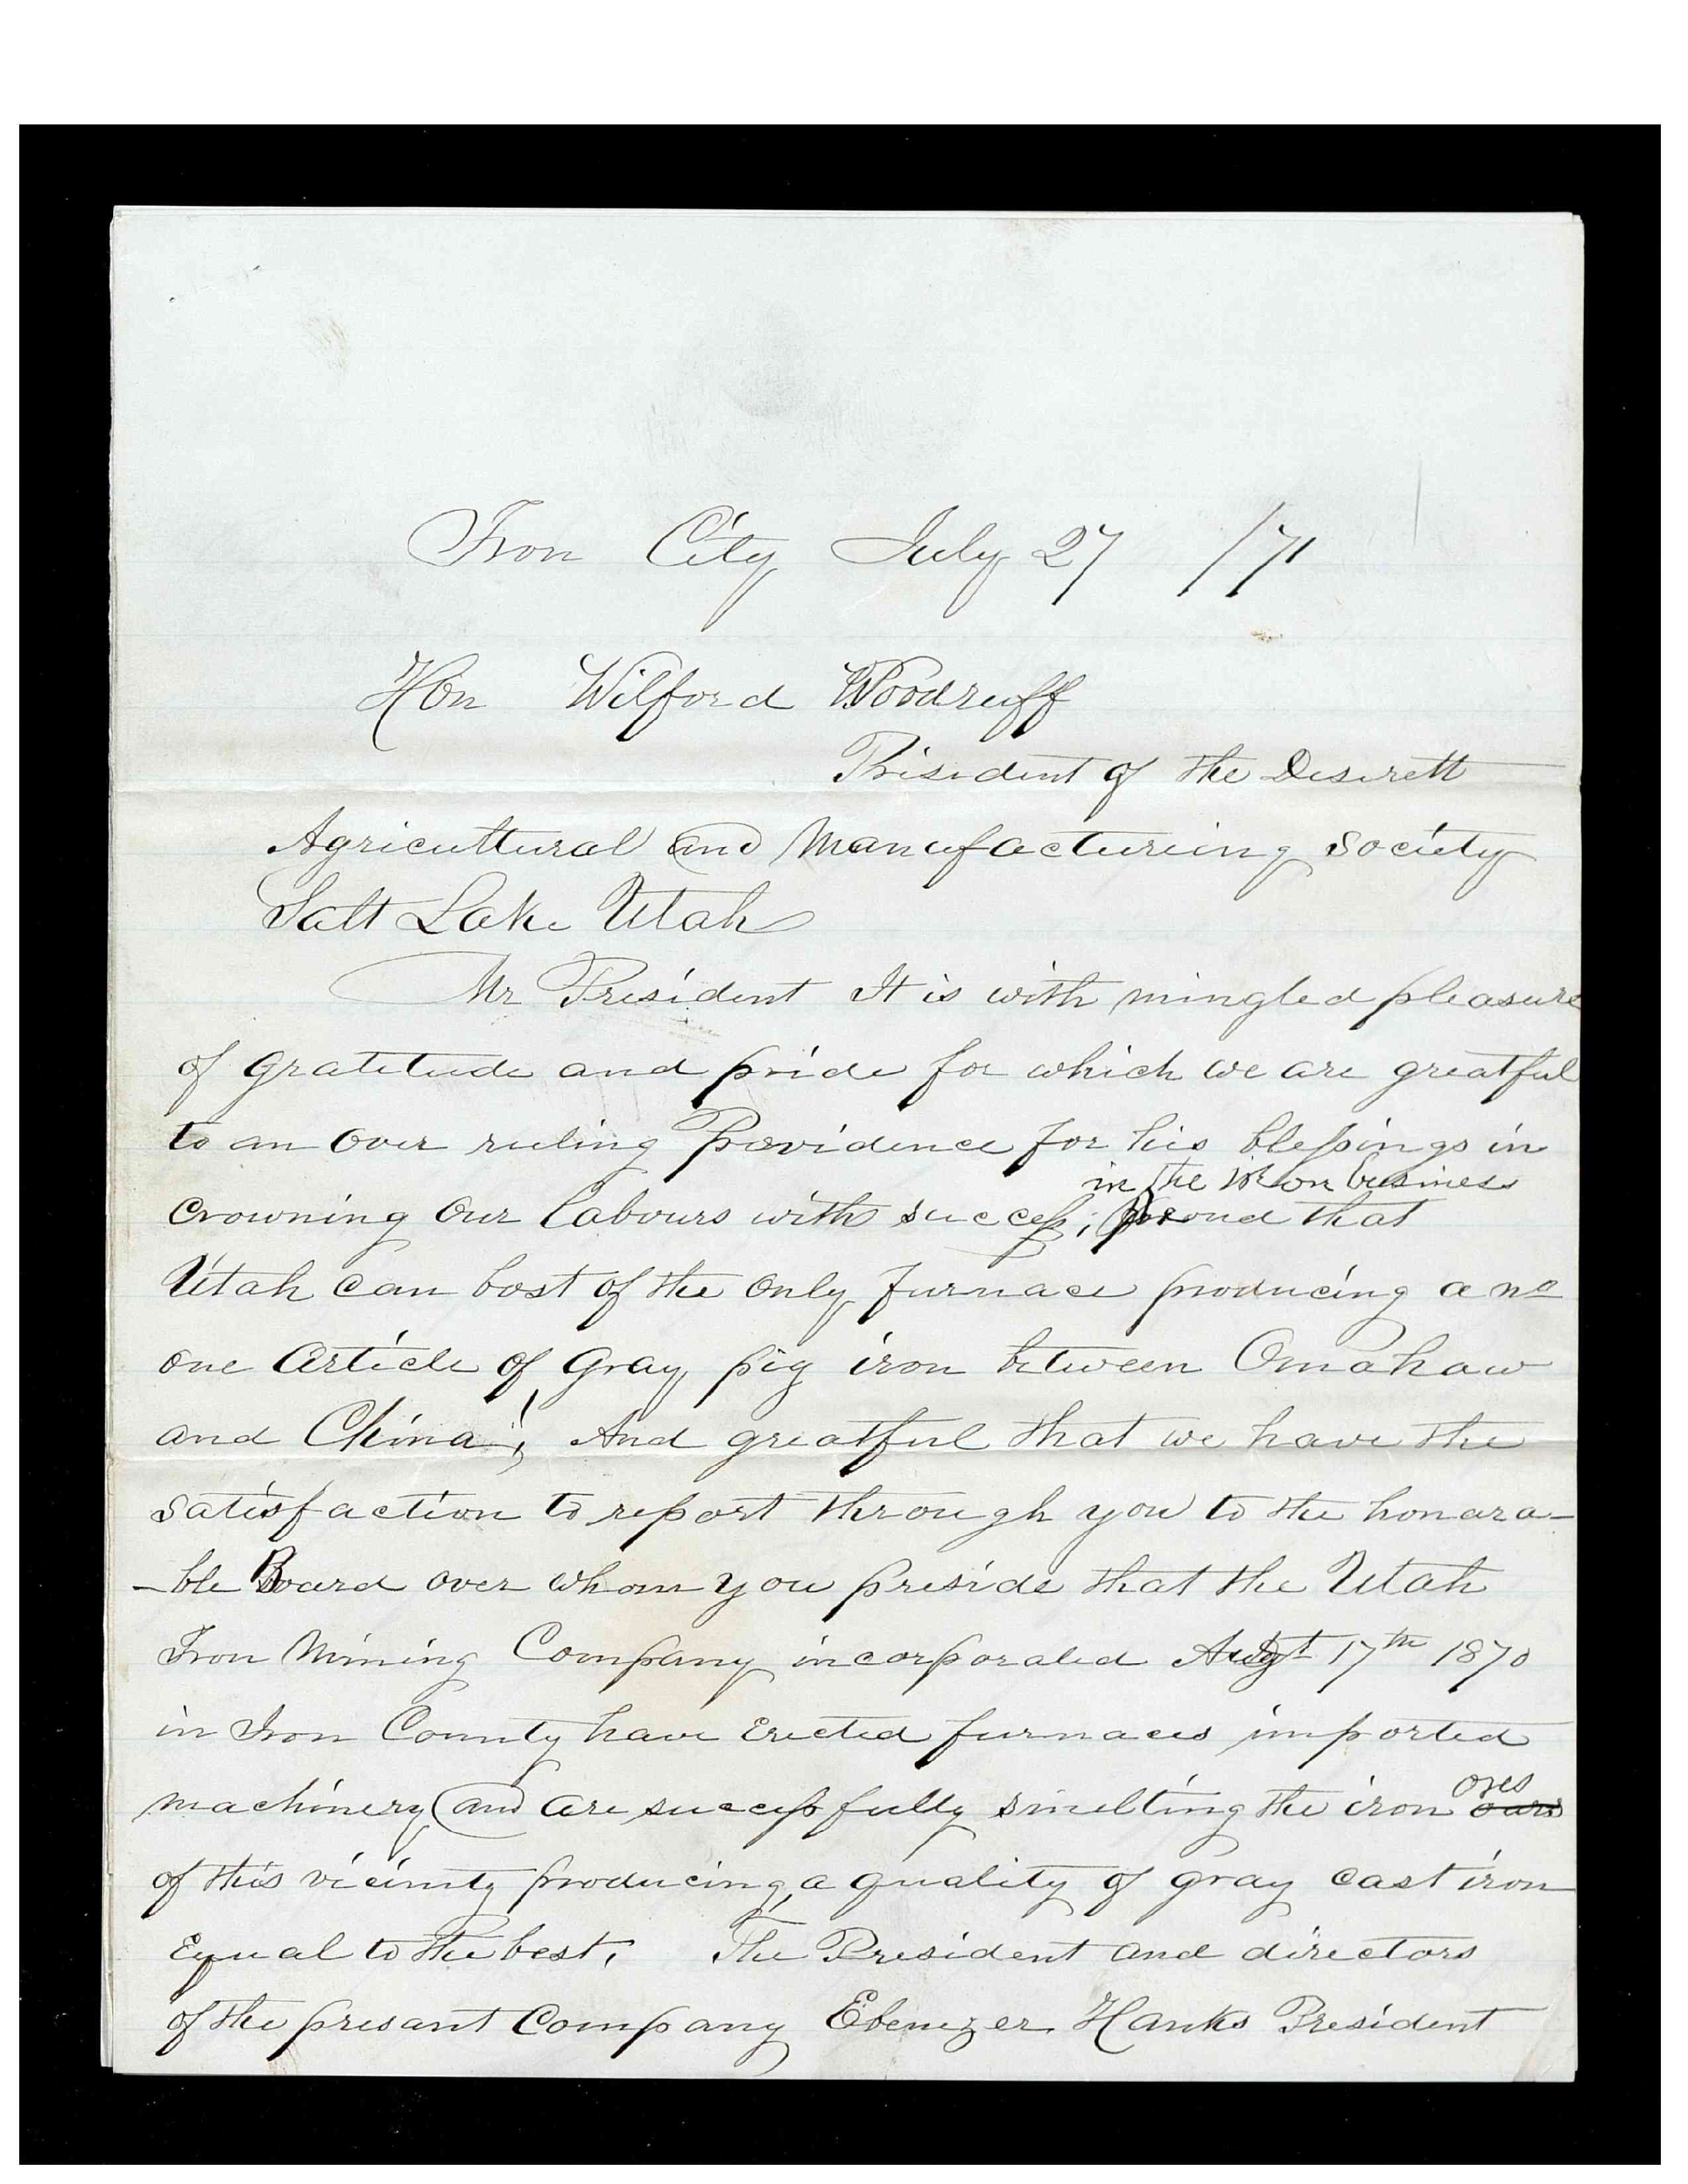 Iron City July 27 /71
Hon Wilford Woodruff
President of the Deserett
Agricultural and Manufactureing Society
Salt Lake Utah
Mr President It is with mingled pleasure
of gratitude and pride for which we are greatful
to an over ruling Providence for his blessings in
in the iron business
crowning our labours with success; proud that
Utah can bost of the only furnace producing a no
one article of gray pig iron between Omahaw
and China; And greatful that we have the
satisfaction to report through you to the honara-
-ble Board over whom you preside that the Utah
Iron Mining Company incorporated Augt 17th 1870
in Iron County have Erected furnaces imported
ores
machinery and are successfully smelting the iron ours
of this vicinity producing a quality of gray cast iron
Equal to the best, The President and directors
of the presant Company Ebenezer Hanks President